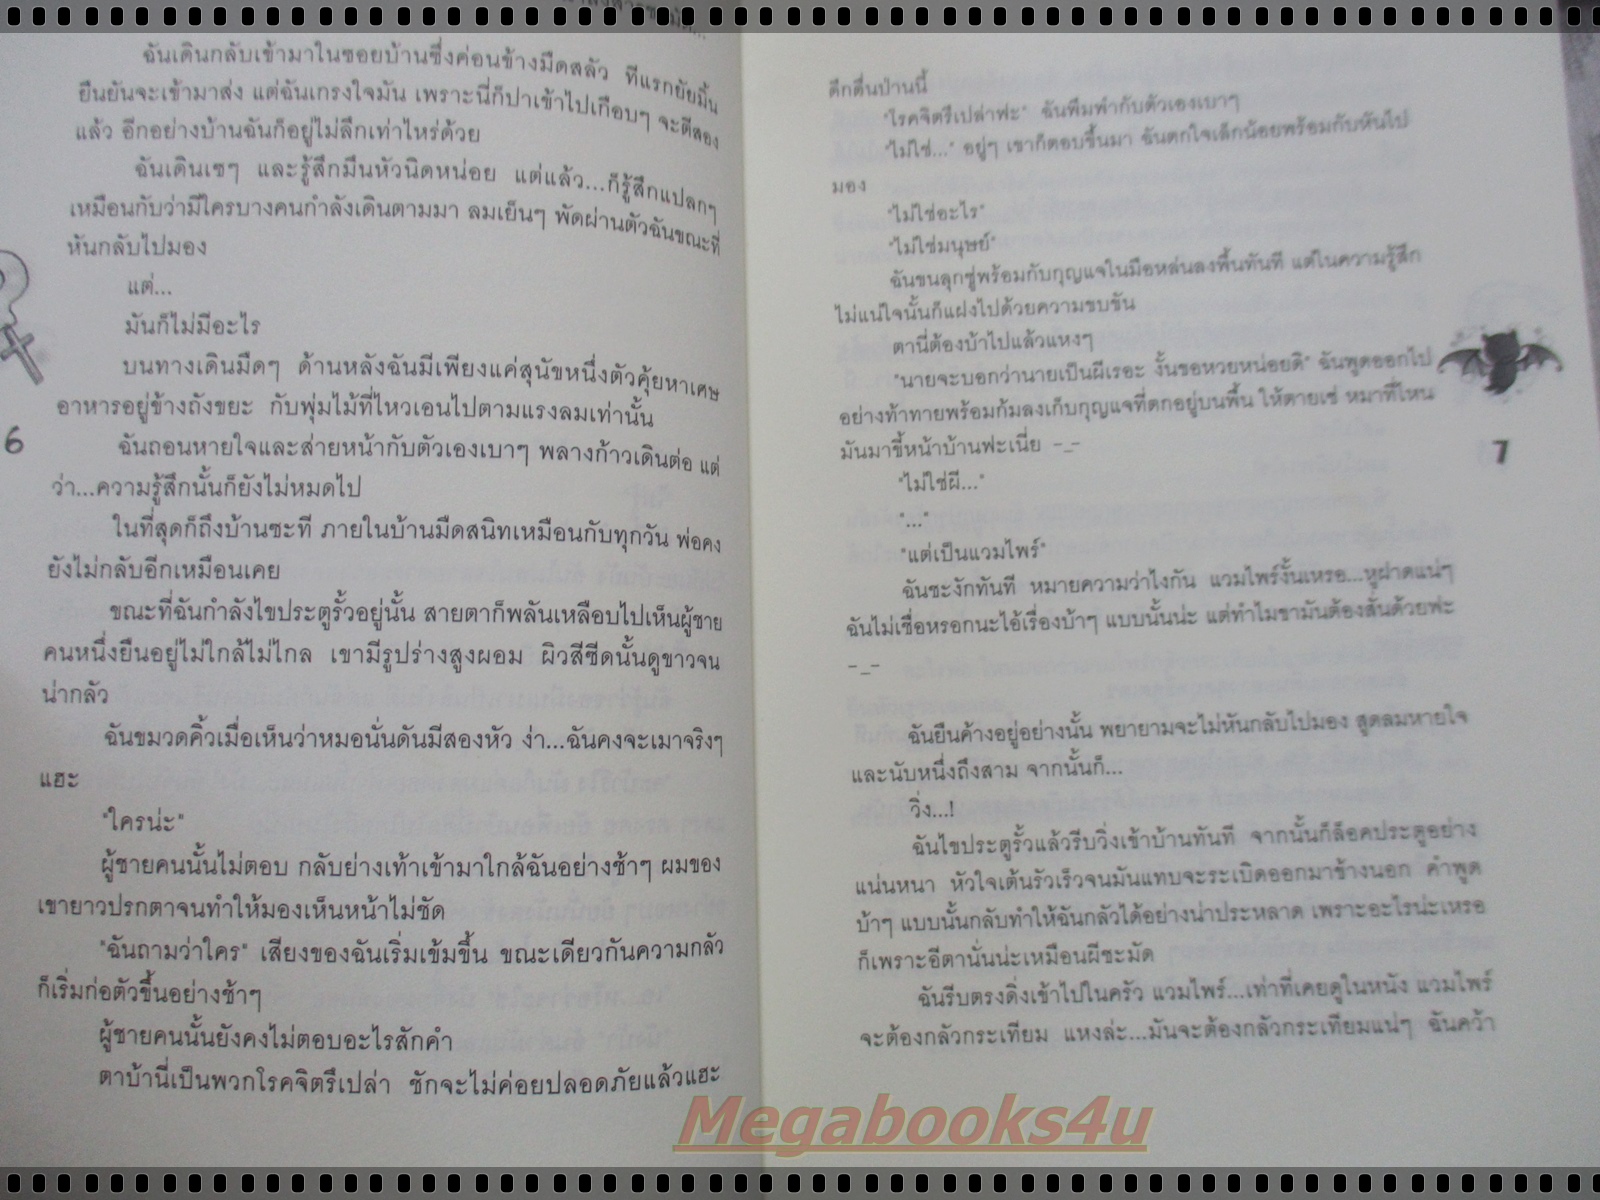 ฉันเดินกลับเข้ามาในซอยบ้านซึ่งค่อนข้างมืดสลัว ทีแรกยัยมิ้น
ยืนยันจะเข้ามาส่ง แต่ฉันเกรงใจมัน เพราะนี่ก็ปาเข้าไปเกือบๆ จะตีสอง
แล้ว อีกอย่างบ้านฉันก็อยู่ไม่ลึกเท่าไหร่ด้วย
ฉันเดินเซๆ และรู้สึกมึนหัวนิดหน่อย แต่แล้ว...ก็รู้สึกแปลกๆ
เหมือนกับว่ามีใครบางคนกำลังเดินตามมา ลมเย็นๆ พัดผ่านตัวฉันขณะที่
หันกลับไปมอง
แต่...
มันก็ไม่มีอะไร
บนทางเดินมืดๆ ด้านหลังฉันมีเพียงแค่สุนัขหนึ่งตัวคุ้ยหาเศษ
อาหารอยู่ข้างถังขยะ กับพุ่มไม้ที่ไหวเอนไปตามแรงลมเท่านั้น
ฉันถอนหายใจและส่ายหน้ากับตัวเองเบาๆ พลางก้าวเดินต่อ แต่
ว่า...ความรู้สึกนั้นก็ยังไม่หมดไป
ในที่สุดก็ถึงบ้านซะที ภายในบ้านมืดสนิทเหมือนกับทุกวัน พ่อคง
ยังไม่กลับอีกเหมือนเคย
ขณะที่ฉันกำลังไขประตูรั้วอยู่นั้น สายตาก็พลันเหลือบไปเห็นผู้ชาย
คนหนึ่งยืนอยู่ไม่ใกล้ไม่ไกล เขามีรูปร่างสูงผอม ผิวสีซีดนั้นดูขาวจน
น่ากลัว
ฉันขมวดคิ้วเมื่อเห็นว่าหมอนั่นดันมีสองหัว ง่า...ฉันคงจะเมาจริงๆ
แฮะ
"ใครน่ะ"
ผู้ชายคนนั้นไม่ตอบ กลับย่างเท้าเข้ามาใกล้ฉันอย่างช้าๆ ผมของ
เขายาวปรกตาจนทำให้มองเห็นหน้าไม่ชัด
"ฉันถามว่าใคร" เสียงของฉันเริ่มเข้มขึ้น ขณะเดียวกันความกลัว
ก็เริ่มก่อตัวขึ้นอย่างช้าๆ
ผู้ชายคนนั้นยังคงไม่ตอบอะไรสักคำ
ตาบ้านี่เป็นพวกโรคจิตรึเปล่า ชักจะไม่ค่อยปลอดภัยแล้วแฮะ
6
ดึกดื่นป่านนี้
"โรคจิตรึเปล่าฟะ" ฉันพึมพำกับตัวเองเบาๆ
"ไม่ใช่..." อยู่ๆ เขาก็ตอบขึ้นมา ฉันตกใจเล็กน้อยพร้อมกับหันไป
มอง
"ไม่ใช่อะไร"
"ไม่ใช่มนุษย์"
ฉันขนลุกซู่พร้อมกับกุญแจในมือหล่นลงพื้นทันที แต่ในความรู้สึก
ไม่แน่ใจนั้นก็แฝงไปด้วยความขบขัน
ตานี่ต้องบ้าไปแล้วแหงๆ
"นายจะบอกว่านายเป็นผีเรอะ งั้นขอหวยหน่อยดิ" ฉันพูดออกไป
อย่างท้าทายพร้อมก้มลงเก็บกุญแจที่ตกอยู่บนพื้น ให้ตายเซ่ หมาที่ไหน
มันมาขี้หน้าบ้านฟะเนี่ย -_-
"ไม่ใช่ผี..."
"..."
"แต่เป็นแวมไพร์"
ฉันชะงักทันที หมายความว่าไงกัน แวมไพร์งั้นเหรอ...หูฝาดแน่ๆ
ฉันไม่เชื่อหรอกนะไอ้เรื่องบ้าๆ แบบนั้นน่ะ แต่ทำไมขามันต้องสั่นด้วยฟะ
-_-
ฉันยืนค้างอยู่อย่างนั้น พยายามจะไม่หันกลับไปมอง สูดลมหายใจ
และนับหนึ่งถึงสาม จากนั้นก็...
วิ่ง...!
ฉันไขประตูรั้วแล้วรีบวิ่งเข้าบ้านทันที จากนั้นก็ล็อคประตูอย่าง
แน่นหนา หัวใจเต้นรัวเร็วจนมันแทบจะระเบิดออกมาข้างนอก คำพูด
บ้าๆ แบบนั้นกลับทำให้ฉันกลัวได้อย่างน่าประหลาด เพราะอะไรน่ะเหรอ
ก็เพราะอีตานั่นน่ะเหมือนผีชะมัด
ฉันรีบตรงดิ่งเข้าไปในครัว แวมไพร์...เท่าที่เคยดูในหนัง แวมไพร์
จะต้องกลัวกระเทียม แหงล่ะ...มันจะต้องกลัวกระเทียมแน่ๆ ฉันคว้า
7
Megabooks4u